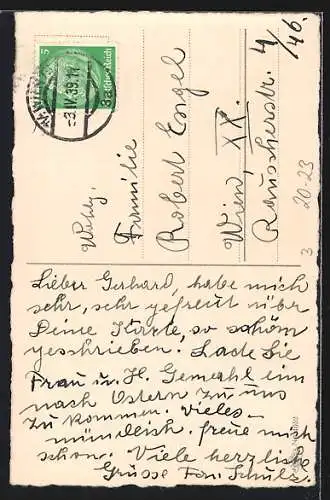 5
Deutsches Reich
WIEN
-3.IV.39.14
Wohlg.
Familie
Robert Engel
Wien, XX.
Rauscherstr. 4/46.
3 20-23
Lieber Gerhard, habe mich
sehr, sehr gefreut über
Deine Karte, so schön
geschrieben. Lade Sie
Frau u. H. Gemahl ein
nach Ostern zu uns
zu kommen. Vieles
mündlich. freue mich
schon. Viele herzlich
Grüsse Fam. Schulz.